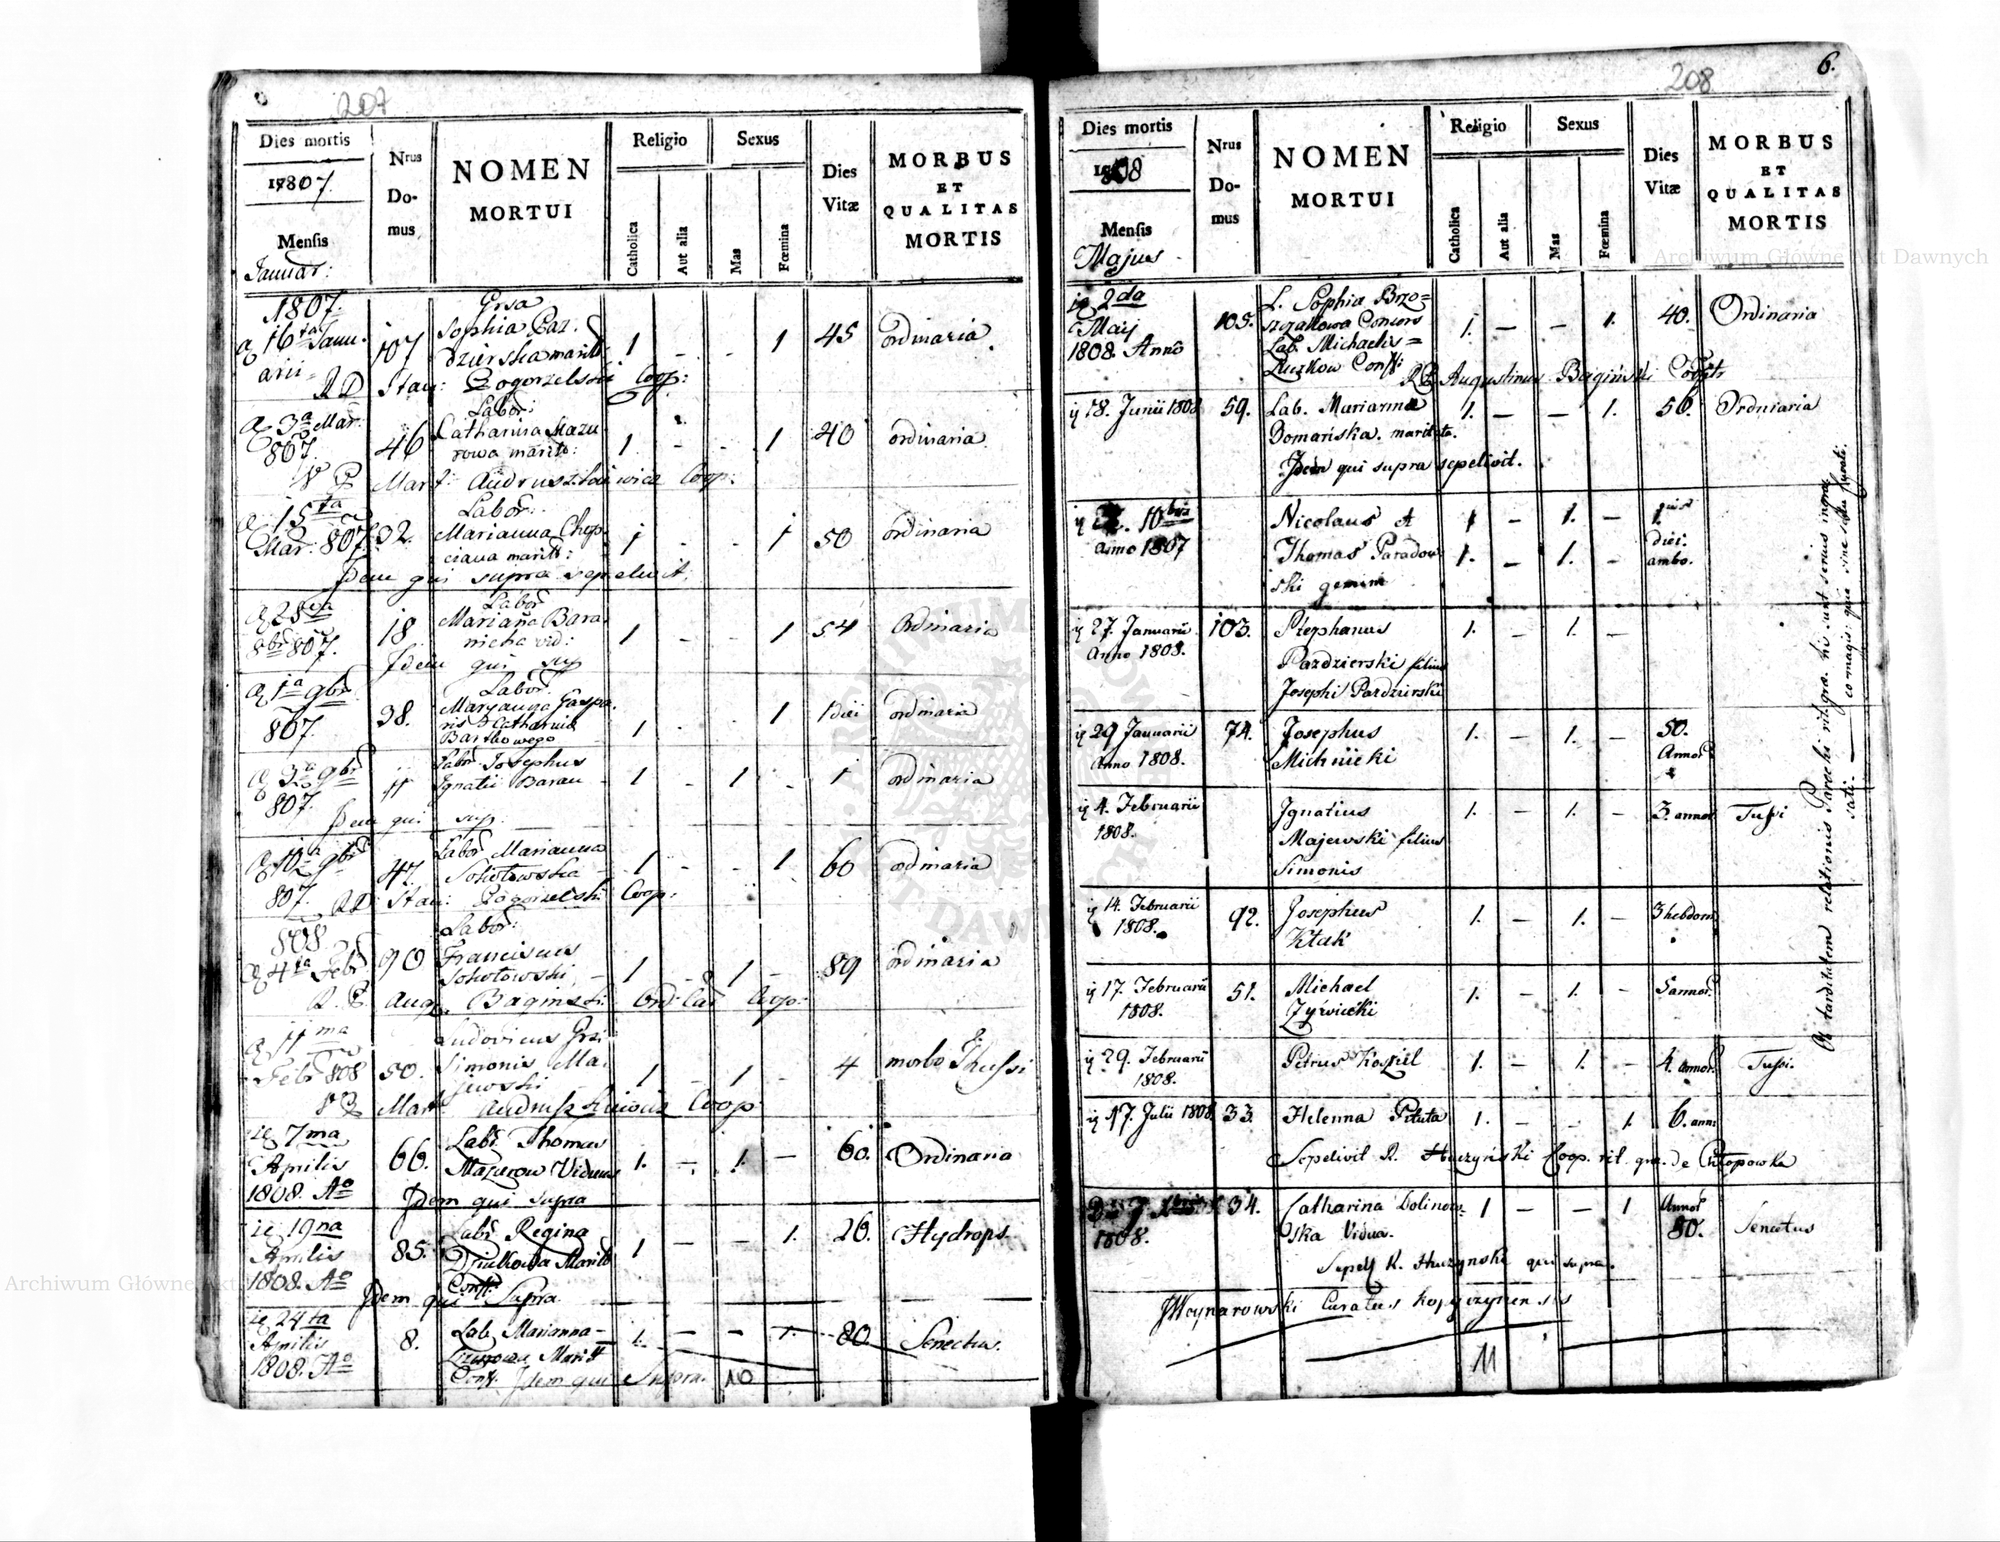 207
Dies mortis
1807.
Mensis
Januar:
Nrus
Do-
mus
NOMEN
MORTUI
Religio
Catholica
Aut alia
Sexus
Mas
Fœmina
Dies
Vitæ
MORBUS
ET
QUALITAS
MORTIS
1807.
16ta Janu.
arii
107
Sophia Paz.
dzierska marit:
1 - - 1 45 ordinaria.
RD Stan: Pogorzelski Coop:
3a Mar.
807.
46
Labor:
Catharina Mazu
rowa marit:
1 - - 1 40 ordinaria
Mart: Andruszkiewicz Coop:
15ta
Mar: 807
32
Labor:
Marianna Chop
ciana marit:
1 - - 1 50 ordinaria
Idem qui supra sepelivit.
28va
8bris 807.
18
Labor
Marianna Bara
niecha vid:
1 - - 1 54 Ordinaria
Idem qui sup
1a 9bris
807.
38.
Labor.
Maryanna Gaspa
ris & Catharina
Bartkowego
1 - - 1 1 diei ordinaria
3a 9bris
807.
11
Labor Josephus
Ignatii Baran
1 - 1 - 1 ordinaria
Idem qui sup.
10a 9bris
807.
47.
Labor Marianna
Sokołowska
1 - - 1 60 ordinaria
RD Stan: Pogorzelski Coop:
808
4ta Febr
90
Labor:
Franciscus
Sokołowski
1 - 1 - 89 ordinaria
Aug. Baginski Coop:
11ma
Febr 808
50.
Ludovicus
Simonis Ma
jewski
1 - 1 - 4 morbo Thussi
Mart Andruszkiewicz Coop
7ma
Aprilis
1808. Ao
66.
Labr. Thomas
Mazurow Viduus
1. - 1. - 60. Ordinaria
Idem qui supra
19na
Aprilis
1808. Ao
85.
Labr Regina
Marit
Conss.
1 - - 1. 26. Hydrops.
Idem qui Supra.
24ta
Aprilis
1808. Ao
8.
Lab. Marianna
Marit
Conss. Idem qui Supra.
1. - - 1. 80. Senectus.
10
208
6.
Dies mortis
1808
Mensis
Majus
Nrus
Do-
mus
NOMEN
MORTUI
Religio
Catholica
Aut alia
Sexus
Mas
Fœmina
Dies
Vitæ
MORBUS
ET
QUALITAS
MORTIS
2da
May
1808. Anno
105.
L. Sophia Brzo=
szczakowa Consors
Lab. Michaelis
1. - - 1. 40. Ordinaria
Augustinus Baginski Cooptr
18. Junii 1808
59.
Lab. Marianna
Domańska. maritata.
1. - - 1. 56. Ordinaria
Idem qui supra sepelivit.
10bris
Anno 1807
Nicolaus et
Thomas Paradow
ski gemini
1 - 1. -
1. - 1. -
diei
ambo.
27. Januarii
Anno 1808.
103.
Stephanus
Pazdzierski filius
Josephi Pazdzierski
1. - 1. -
29 Januarii
Anno 1808.
74.
Josephus
Michnicki
1. - 1. -
50.
Annor
4. Februarii
1808.
Ignatius
Majewski filius
Simonis
1. - 1. - 3. annor Tussi
14. Februarii
1808.
92.
Josephus
Ktak
1. - 1. - 3 hebdom
17. Februarii
1808.
51.
Michael
Zywicki
1. - 1. - 5 annor.
29. Februarii
1808.
Petrus Koziel
1. - 1. - 4. annor. Tussi.
17. Julii 1808
33
Helenna Pituta
1. - - 1. 6. ann:
Sepelivit R. Huczyński Coop. rit. gra. de Chłopowka
1808.
34.
Catharina Dolinow-
ska Vidua.
1 - - 1
Annor
80.
Senectus
Sepel. R. Huczynski qui supra.
JWoynarowski Curatus Kopyczynensis
11
Ob tarditatem relationis Parochi rit. gra. hi sunt serius inscrip
sati.
Archiwum Główne Akt Dawnych